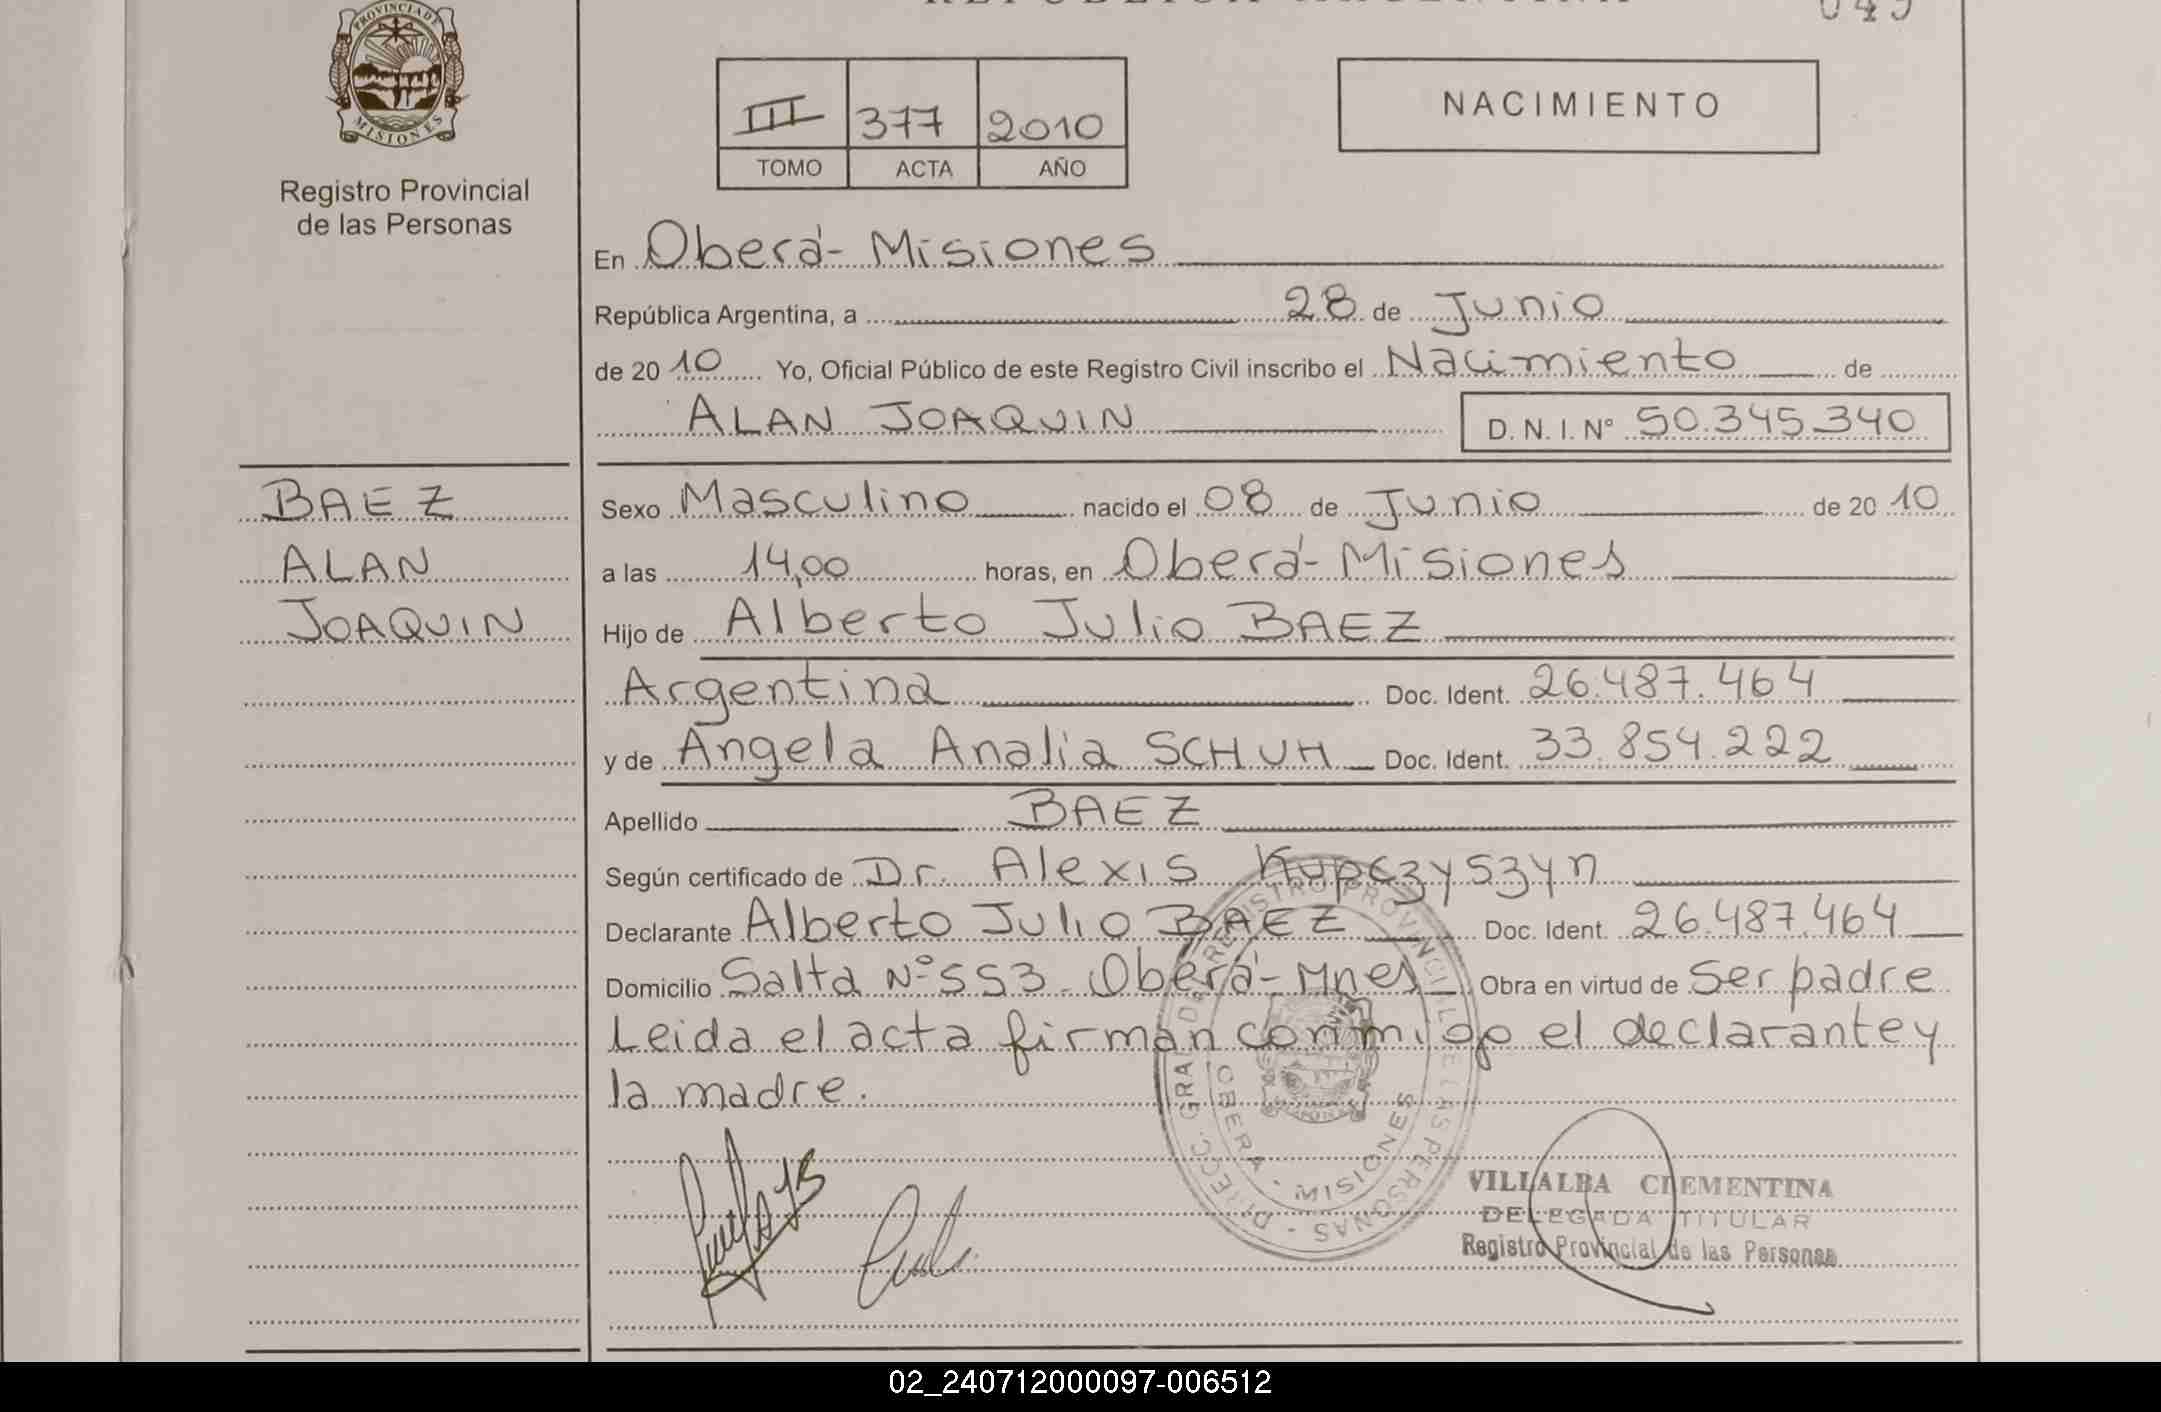 REPUBLICA ARGENTINA
049
PROVINCIA DE
MISIONES
Registro Provincial
de las Personas
III 377 2010
TOMO ACTA AÑO
NACIMIENTO
En Oberá - Misiones
República Argentina, a 28 de Junio
de 2010 Yo, Oficial Público de este Registro Civil inscribo el Nacimiento de
ALAN JOAQUIN D. N. I. N° 50.345.340
BAEZ
ALAN
JOAQUIN
Sexo Masculino nacido el 08 de Junio de 2010
a las 14,00 horas, en Oberá - Misiones
Hijo de Alberto Julio BAEZ
Argentina Doc. Ident. 26.487.464
y de Angela Analia SCHUH Doc. Ident. 33.854.222
Apellido BAEZ
Según certificado de Dr. Alexis Kupczyszyn
Declarante Alberto Julio BAEZ Doc. Ident. 26.487.464
Domicilio Salta N° 553 - Oberá - Mnes Obra en virtud de Ser padre
Leida el acta firman conmigo el declarante y
la madre.
OBERA - MISIONES
VILLALBA CLEMENTINA
DELEGADA TITULAR
Registro Provincial de las Personas
02_240712000097-006512